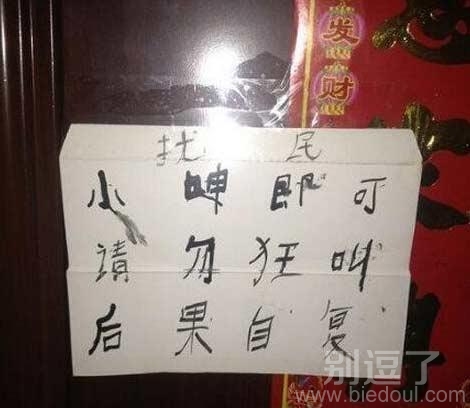 发财
扰 民
小 呻 即 可
请 勿 狂 叫
后 果 自 复
别逗了
www.biedoul.com